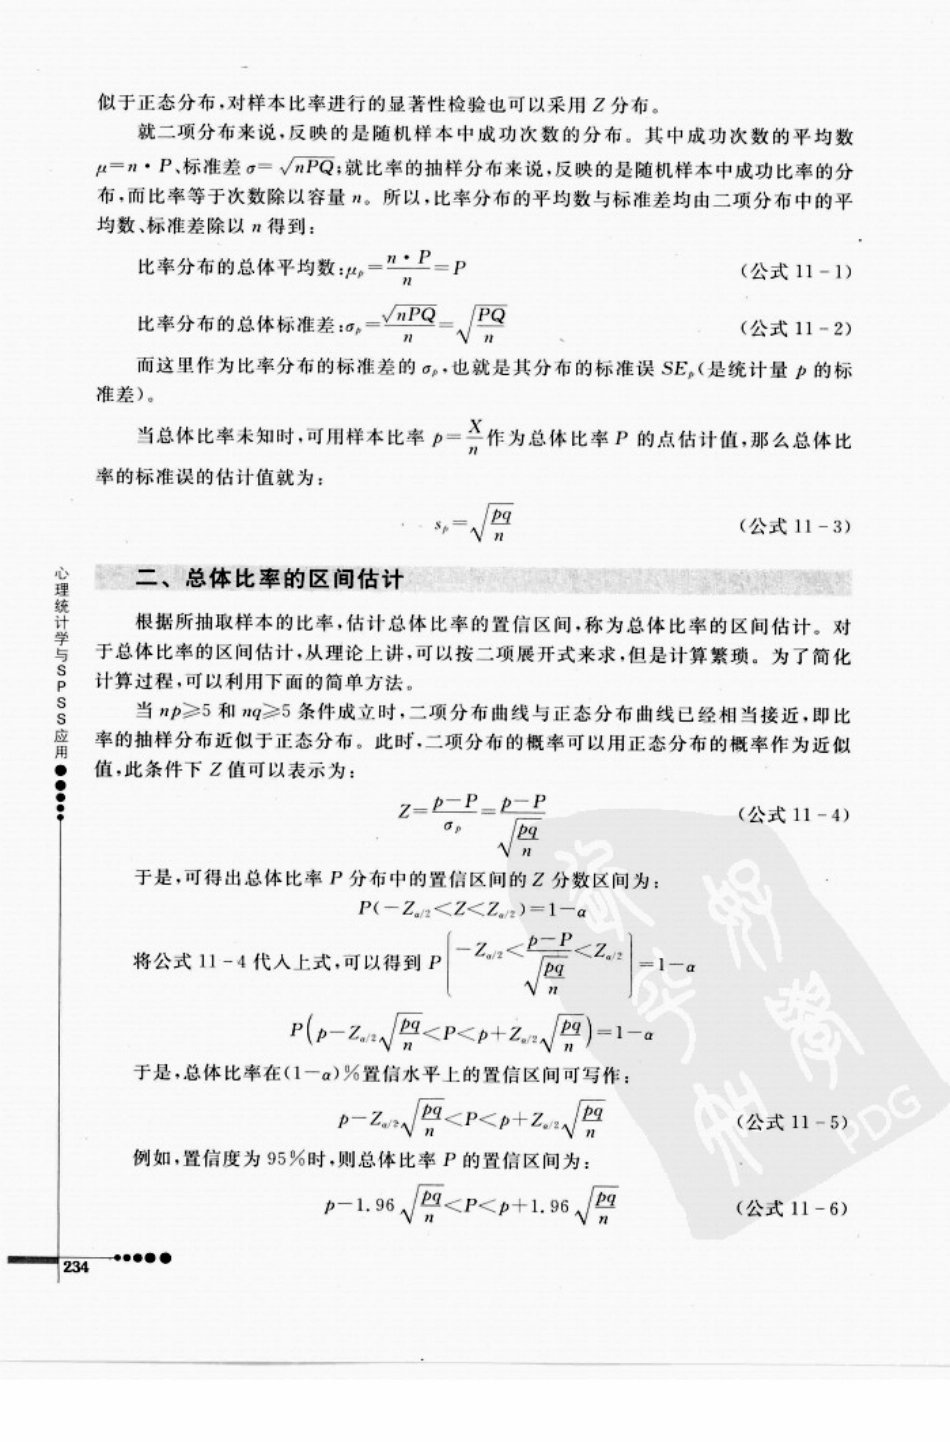 似于正态分布,对样本比率进行的显著性检验也可以采用 Z 分布。
就二项分布来说,反映的是随机样本中成功次数的分布。其中成功次数的平均数
μ=n·P、标准差 σ=√nPQ;就比率的抽样分布来说,反映的是随机样本中成功比率的分
布,而比率等于次数除以容量 n。所以,比率分布的平均数与标准差均由二项分布中的平
均数、标准差除以 n 得到:
比率分布的总体平均数:μp=n·P/n=P (公式 11-1)
比率分布的总体标准差:σp=√nPQ/n=√(PQ/n) (公式 11-2)
而这里作为比率分布的标准差的 σp,也就是其分布的标准误 SEp(是统计量 p 的标
准差)。
当总体比率未知时,可用样本比率 p=X/n作为总体比率 P 的点估计值,那么总体比
率的标准误的估计值就为:
sp=√(pq/n) (公式 11-3)
二、总体比率的区间估计
根据所抽取样本的比率,估计总体比率的置信区间,称为总体比率的区间估计。对
于总体比率的区间估计,从理论上讲,可以按二项展开式来求,但是计算繁琐。为了简化
计算过程,可以利用下面的简单方法。
当 np≥5 和 nq≥5 条件成立时,二项分布曲线与正态分布曲线已经相当接近,即比
率的抽样分布近似于正态分布。此时,二项分布的概率可以用正态分布的概率作为近似
值,此条件下 Z 值可以表示为:
Z=(p-P)/σp=(p-P)/√(pq/n) (公式 11-4)
于是,可得出总体比率 P 分布中的置信区间的 Z 分数区间为:
P(-Zα/2<Z<Zα/2)=1-α
将公式 11-4 代入上式,可以得到 P[-Zα/2<(p-P)/√(pq/n)<Zα/2]=1-α
P(p-Zα/2√(pq/n)<P<p+Zα/2√(pq/n))=1-α
于是,总体比率在(1-α)%置信水平上的置信区间可写作:
p-Zα/2√(pq/n)<P<p+Zα/2√(pq/n) (公式 11-5)
例如,置信度为 95%时,则总体比率 P 的置信区间为:
p-1.96√(pq/n)<P<p+1.96√(pq/n) (公式 11-6)
心理统计学与SPSS应用
234
PDG